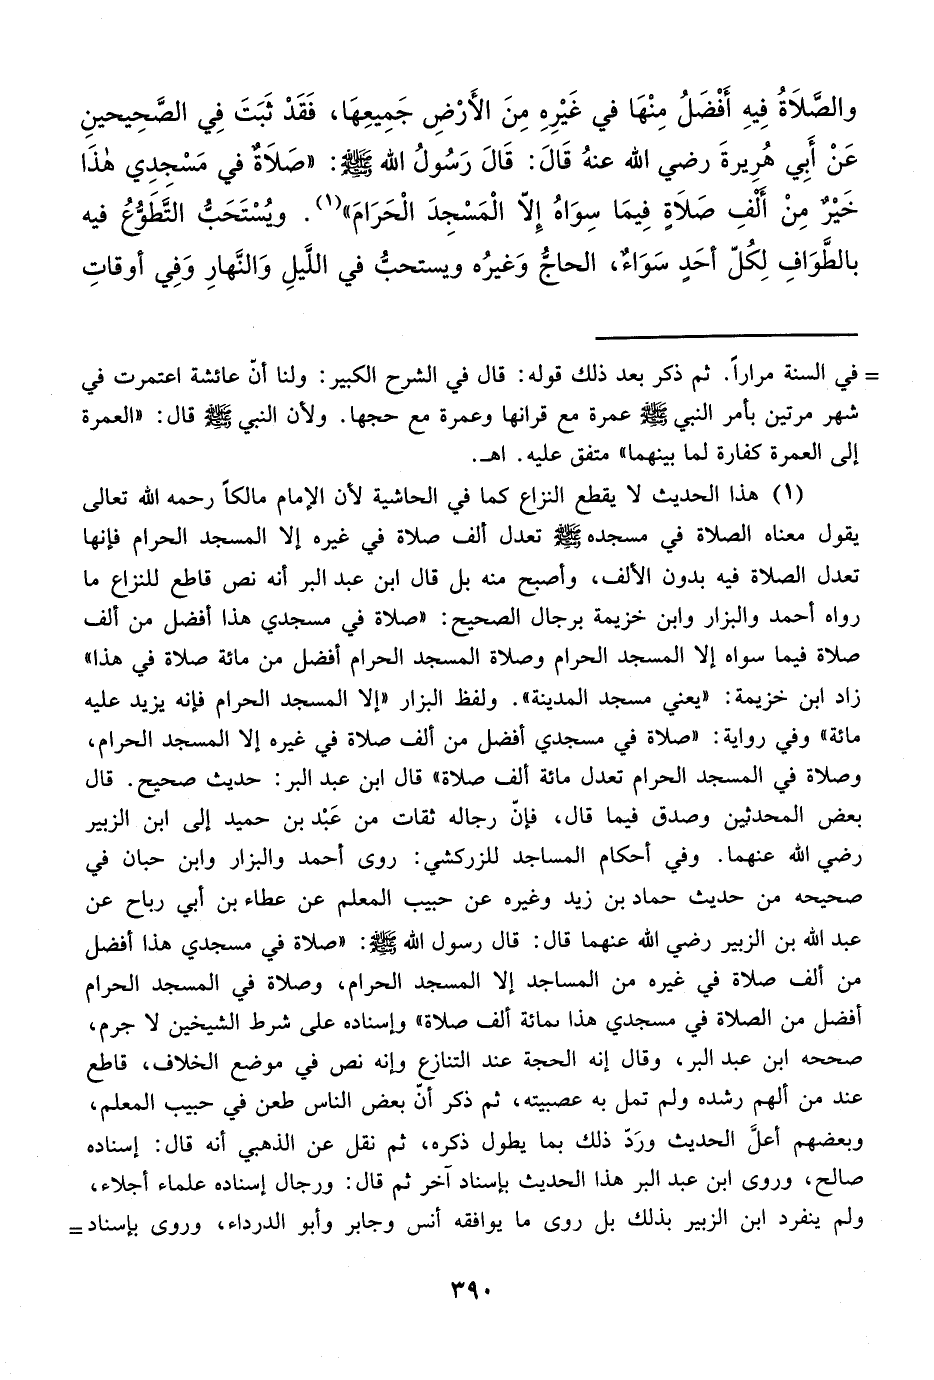 والصَّلَاةُ فِيهِ أَفْضَلُ مِنْهَا في غَيْرِهِ مِنَ الأَرْضِ جَمِيعِهَا، فَقَدْ ثَبَتَ فِي الصَّحِيحينِ
عَنْ أَبِي هُرِيرةَ رضي الله عنهُ قَالَ: قَالَ رَسُولُ الله ﷺ: «صَلَاةٌ في مَسْجِدِي هٰذَا
خَيْرٌ مِنْ أَلْفِ صَلَاةٍ فِيمَا سِوَاهُ إِلّا الْمَسْجِدَ الْحَرَامَ»(١). ويُسْتَحَبُّ التَّطَوُّعُ فيه
بالطَّوَافِ لِكُلّ أحَدٍ سَوَاءٌ، الحاجُّ وَغيرُه ويستحبُّ في اللَّيلِ وَالنَّهارِ وَفِي أوقاتِ
= في السنة مراراً. ثم ذكر بعد ذلك قوله: قال في الشرح الكبير: ولنا أنّ عائشة اعتمرت في
شهر مرتين بأمر النبي ﷺ عمرة مع قرانها وعمرة مع حجها. ولأن النبي ﷺ قال: «العمرة
إلى العمرة كفارة لما بينهما» متفق عليه. اهـ.
(١) هذا الحديث لا يقطع النزاع كما في الحاشية لأن الإمام مالكاً رحمه الله تعالى
يقول معناه الصلاة في مسجده ﷺ تعدل ألف صلاة في غيره إلا المسجد الحرام فإنها
تعدل الصلاة فيه بدون الألف، وأصبح منه بل قال ابن عبد البر أنه نص قاطع للنزاع ما
رواه أحمد والبزار وابن خزيمة برجال الصحيح: «صلاة في مسجدي هذا أفضل من ألف
صلاة فيما سواه إلا المسجد الحرام وصلاة المسجد الحرام أفضل من مائة صلاة في هذا»
زاد ابن خزيمة: «يعني مسجد المدينة». ولفظ البزار «إلا المسجد الحرام فإنه يزيد عليه
مائة» وفي رواية: «صلاة في مسجدي أفضل من ألف صلاة في غيره إلا المسجد الحرام،
وصلاة في المسجد الحرام تعدل مائة ألف صلاة» قال ابن عبد البر: حديث صحيح. قال
بعض المحدثين وصدق فيما قال، فإنّ رجاله ثقات من عَبْد بن حميد إلى ابن الزبير
رضي الله عنهما. وفي أحكام المساجد للزركشي: روى أحمد والبزار وابن حبان في
صحيحه من حديث حماد بن زيد وغيره عن حبيب المعلم عن عطاء بن أبي رباح عن
عبد الله بن الزبير رضي الله عنهما قال: قال رسول الله ﷺ: «صلاة في مسجدي هذا أفضل
من ألف صلاة في غيره من المساجد إلا المسجد الحرام، وصلاة في المسجد الحرام
أفضل من الصلاة في مسجدي هذا بمائة ألف صلاة» وإسناده على شرط الشيخين لا جرم،
صححه ابن عبد البر، وقال إنه الحجة عند التنازع وإنه نص في موضع الخلاف، قاطع
عند من ألهم رشده ولم تمل به عصبيته، ثم ذكر أنّ بعض الناس طعن في حبيب المعلم،
وبعضهم أعلَّ الحديث ورَدّ ذلك بما يطول ذكره، ثم نقل عن الذهبي أنه قال: إسناده
صالح، وروى ابن عبد البر هذا الحديث بإسناد آخر ثم قال: ورجال إسناده علماء أجلاء،
ولم ينفرد ابن الزبير بذلك بل روى ما يوافقه أنس وجابر وأبو الدرداء، وروى بإسناد =
٣٩٠